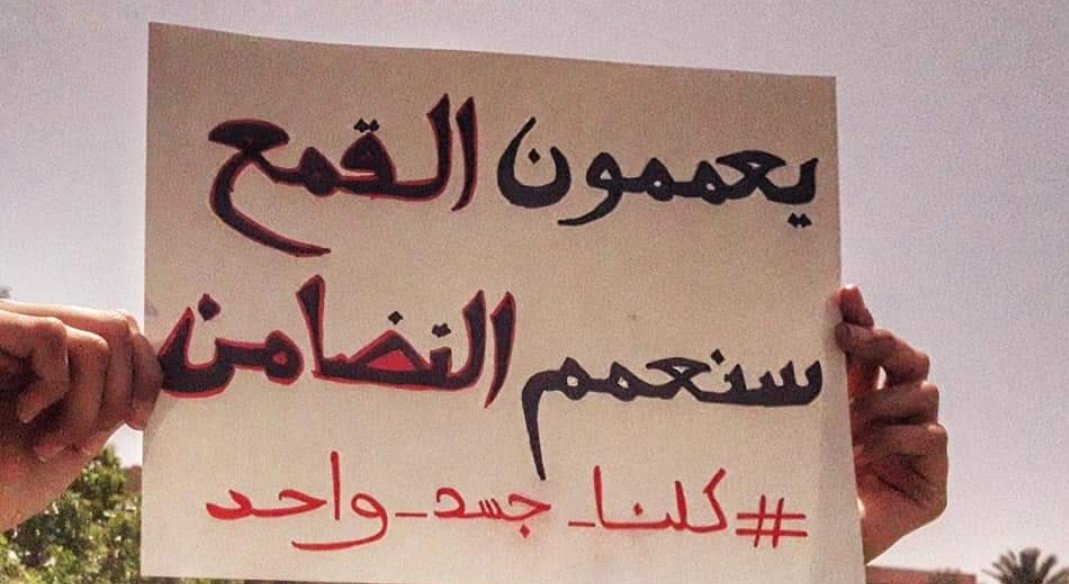 يعممون القمع
سنعمم التضامن
#كلنا_جسد_واحد